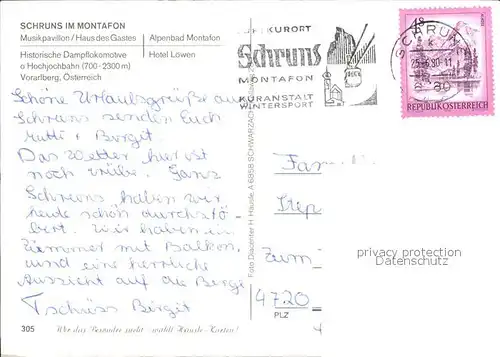 SCHRUNS IM MONTAFON
Musikpavillon / Haus des Gastes
Alpenbad Montafon
Historische Dampflokomotive
Hotel Löwen
o Hochjochbahn (700 - 2300 m)
Vorarlberg, Österreich
LUFTKURORT
Schruns
MONTAFON
KURANSTALT
WINTERSPORT
SCHRUNS
25.-6.80-11
6780
4 S
REPUBLIK ÖSTERREICH
Schöne Urlaubsgrüße aus
Schruns senden Euch
Mutti + Birgit
Das Wetter hier ist
noch trübe. Ganz
Schruns haben wir
heute schön durchstö-
bert. Wir haben ein
Zimmer mit Balkon,
und eine herrliche
Aussicht auf die Berge
Tschüss Birgit
Foto Discenter H. Häusle, A 6858 SCHWARZACH
Fam
Step
Zum
4720
PLZ
privacy protection
Datenschutz
305
Wer das Besondere sucht - wählt Häusle-Karten!